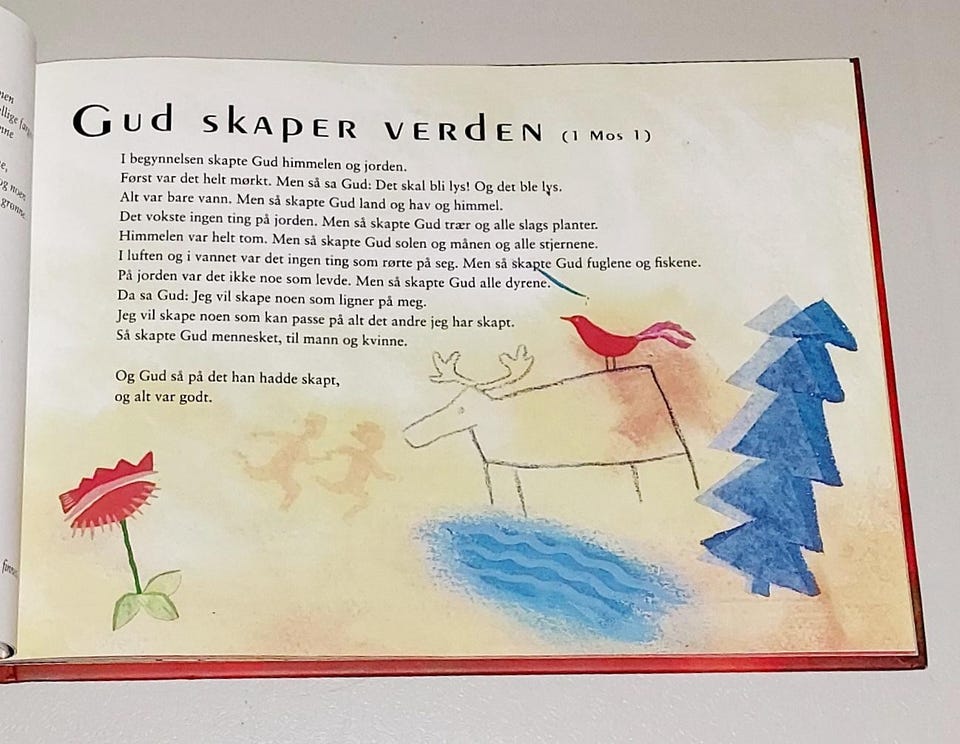 nen
nne
og noen
grønne
GUD SKAPER VERDEN (1 Mos 1)
I begynnelsen skapte Gud himmelen og jorden.
Først var det helt mørkt. Men så sa Gud: Det skal bli lys! Og det ble lys.
Alt var bare vann. Men så skapte Gud land og hav og himmel.
Det vokste ingen ting på jorden. Men så skapte Gud trær og alle slags planter.
Himmelen var helt tom. Men så skapte Gud solen og månen og alle stjernene.
I luften og i vannet var det ingen ting som rørte på seg. Men så skapte Gud fuglene og fiskene.
På jorden var det ikke noe som levde. Men så skapte Gud alle dyrene.
Da sa Gud: Jeg vil skape noen som ligner på meg.
Jeg vil skape noen som kan passe på alt det andre jeg har skapt.
Så skapte Gud mennesket, til mann og kvinne.
Og Gud så på det han hadde skapt,
og alt var godt.